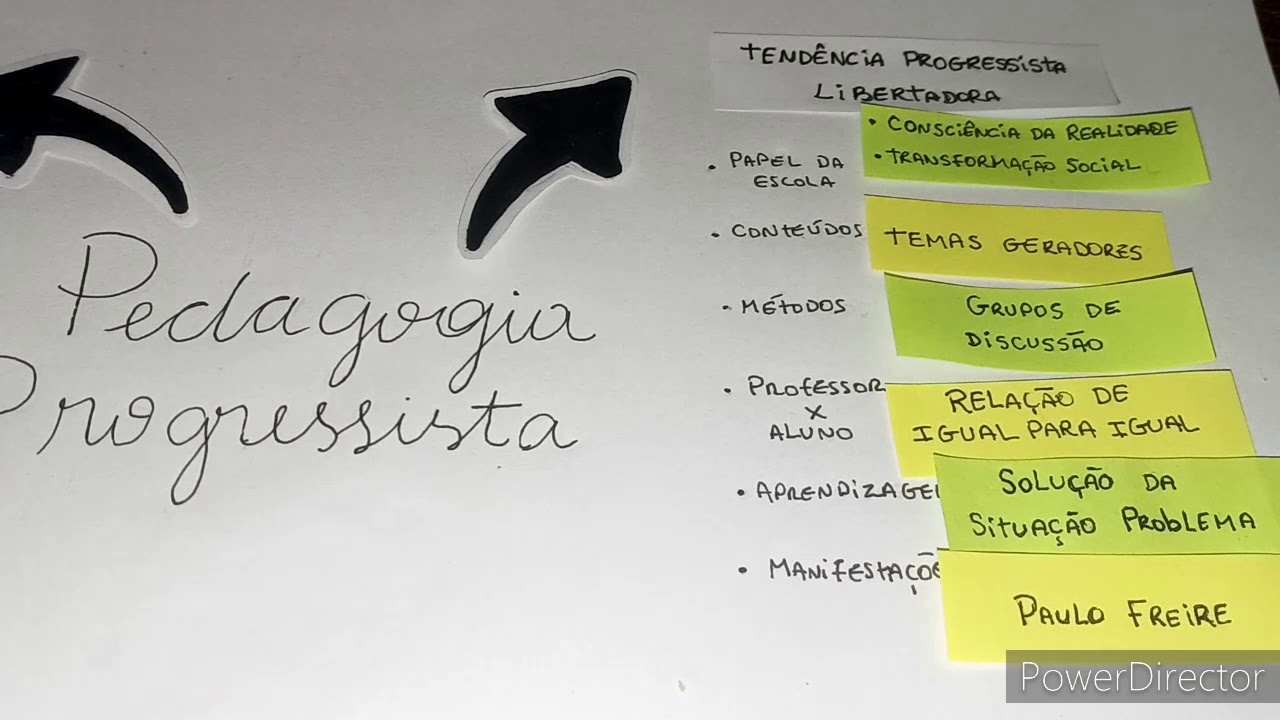 Pedagogia
Progressista
TENDÊNCIA PROGRESSISTA
LIBERTADORA
• PAPEL DA
ESCOLA
• CONSCIÊNCIA DA REALIDADE
• TRANSFORMAÇÃO SOCIAL
• CONTEÚDOS
TEMAS GERADORES
• MÉTODOS
GRUPOS DE
DISCUSSÃO
• PROFESSOR
X
ALUNO
RELAÇÃO DE
IGUAL PARA IGUAL
• APRENDIZAGE
SOLUÇÃO DA
SITUAÇÃO PROBLEMA
• MANIFESTAÇÕE
PAULO FREIRE
PowerDirector